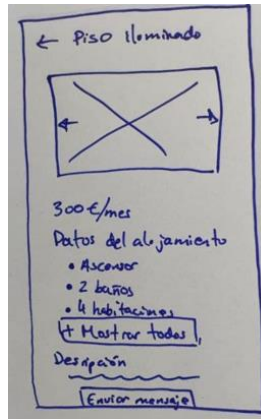 ← Piso Iluminado
300 €/mes
Datos del alojamiento
• Ascensor
• 2 baños
• 4 habitaciones
+ Mostrar todos
Desripción
Enviar mensaje